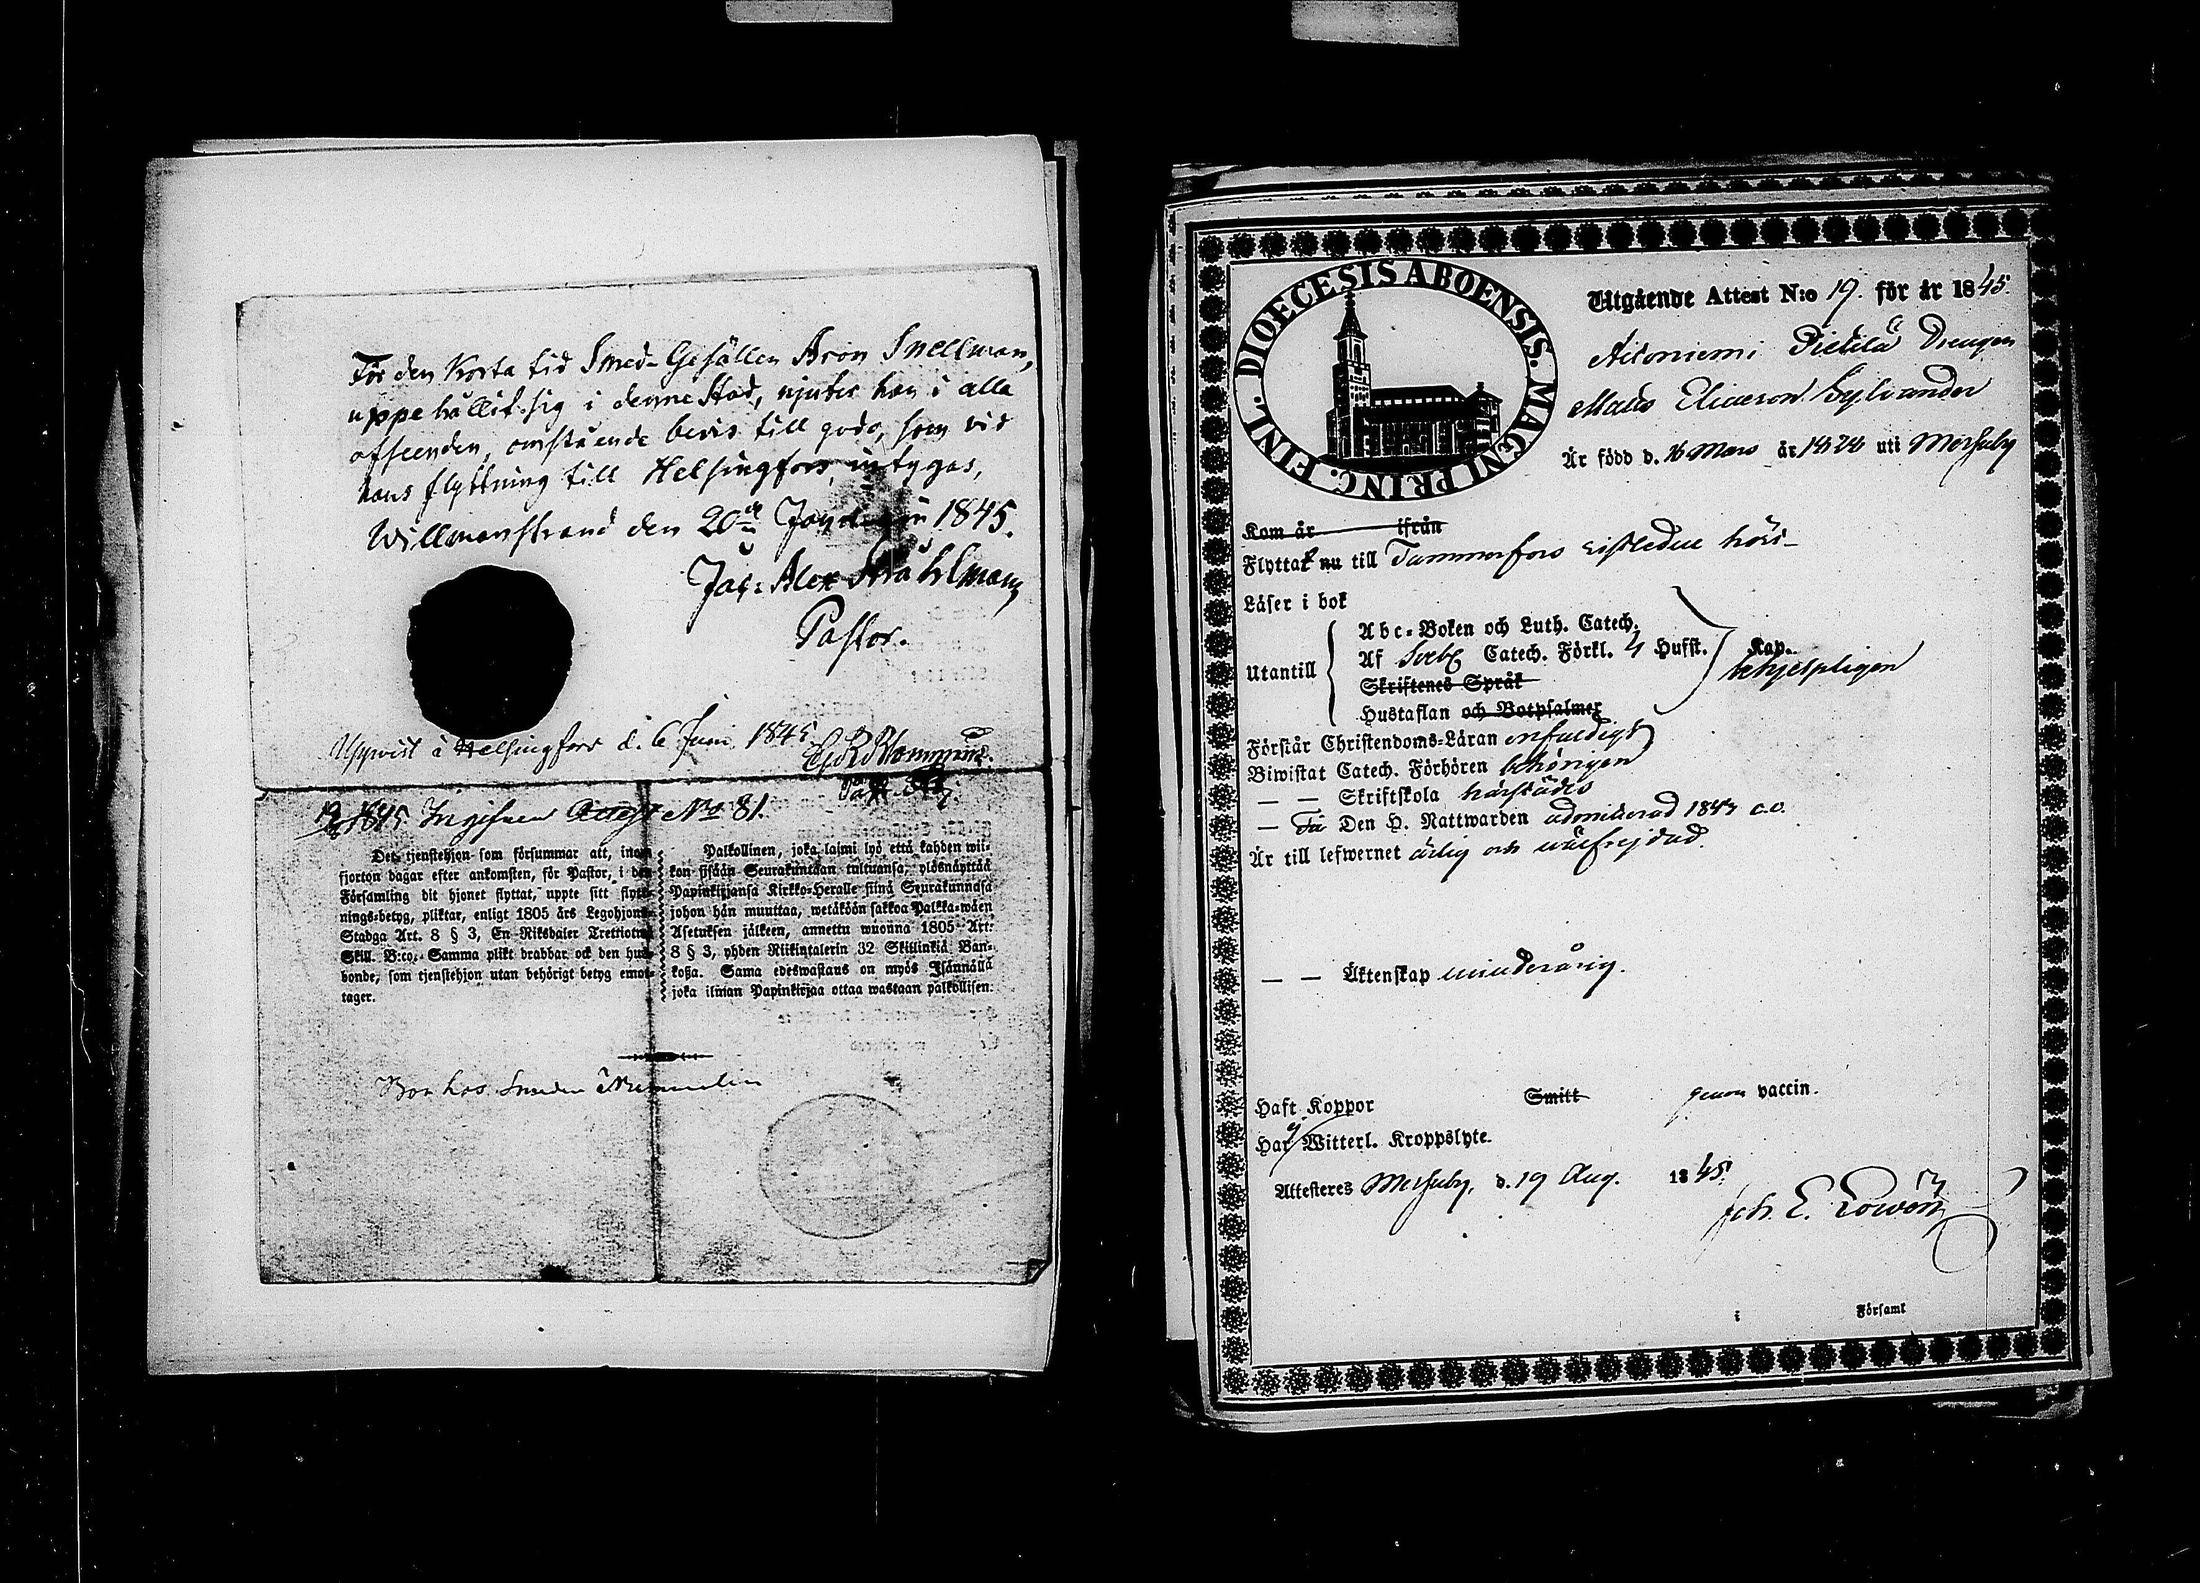 För den korta tid Smed-Gesällen Aron Snellman,
uppehållit sig i denne Stad, njuter han i alla
afseenden, omstående bevis till godo, som vid
hans flyttning till Helsingfors, intygas,
Willmanstrand den 20de 1845.
Jac: Alex Stråhlman
Pastor.
Uppvist i Helsingfors d. 6 Juni 1845
1845 Ingifven Attest No 81.
Det tjenstehjon som försummar att, inom
fjorton dagar efter ankomsten, för Pastor, i den
Församling dit hjonet flyttat, uppte sitt flytt-
nings-betyg, pliktar, enligt 1805 års Legohjons-
Stadga Art. 8 § 3, En Riksdaler Trettiotwå
Skill. B:co. Samma plikt drabbar ock den hus-
bonde, som tjenstehjon utan behörigt betyg emot-
tager.
Palkollinen, joka laimi lyö että kahden wii-
kon sisään Seurakuntaan tultuansa, ylösnäyttää
Papinkirjansa Kirkko-Heralle siinä Seurakunnasa
johon hän muuttaa, wetäköön sakkoa Palkka-wäen
Asetuksen jälkeen, annettu wuonna 1805 Art:
8 § 3, yhden Riikintalerin 32 Skillinkiä Ban-
kosa. Sama edeswastaus on myös Isännällä
joka ilman Papinkirjaa ottaa wastaan palkollisen.
Bor hos Smeden
DIOECESIS ABOENSIS. MAGNI PRINC. FINL.
Utgående Attest N:o 19. för år 1845.
Pietilä Drengen
Mats Eliasson Sylvander
Är född d. 16 Mars år 1828 uti Mörskby
Kom år ifrån
Flyttat nu till Tammerfors sistledne höst
Läser i bok
Utantill
Abc-Boken och Luth. Catech.
Af Sveb. Catech. Förkl. 4 Hufst. Kap.
behjelpligen
Skriftenes Språk
Hustaflan och Botpsalmer
Förstår Christendoms-Läran enfaldigt
Biwistat Catech. Förhören behörigen
— — Skriftskola härstädes
— Den H. Nattwarden admitterad 1843
Är till lefwernet ärlig och välfrejdad.
— — Äktenskap minderårig.
Haft Koppor Smitt genom vaccin.
Har ej Witterl. Kroppslyte.
Attesteres d. 19 Aug. 1845.
Joh. E.
i Förfaml